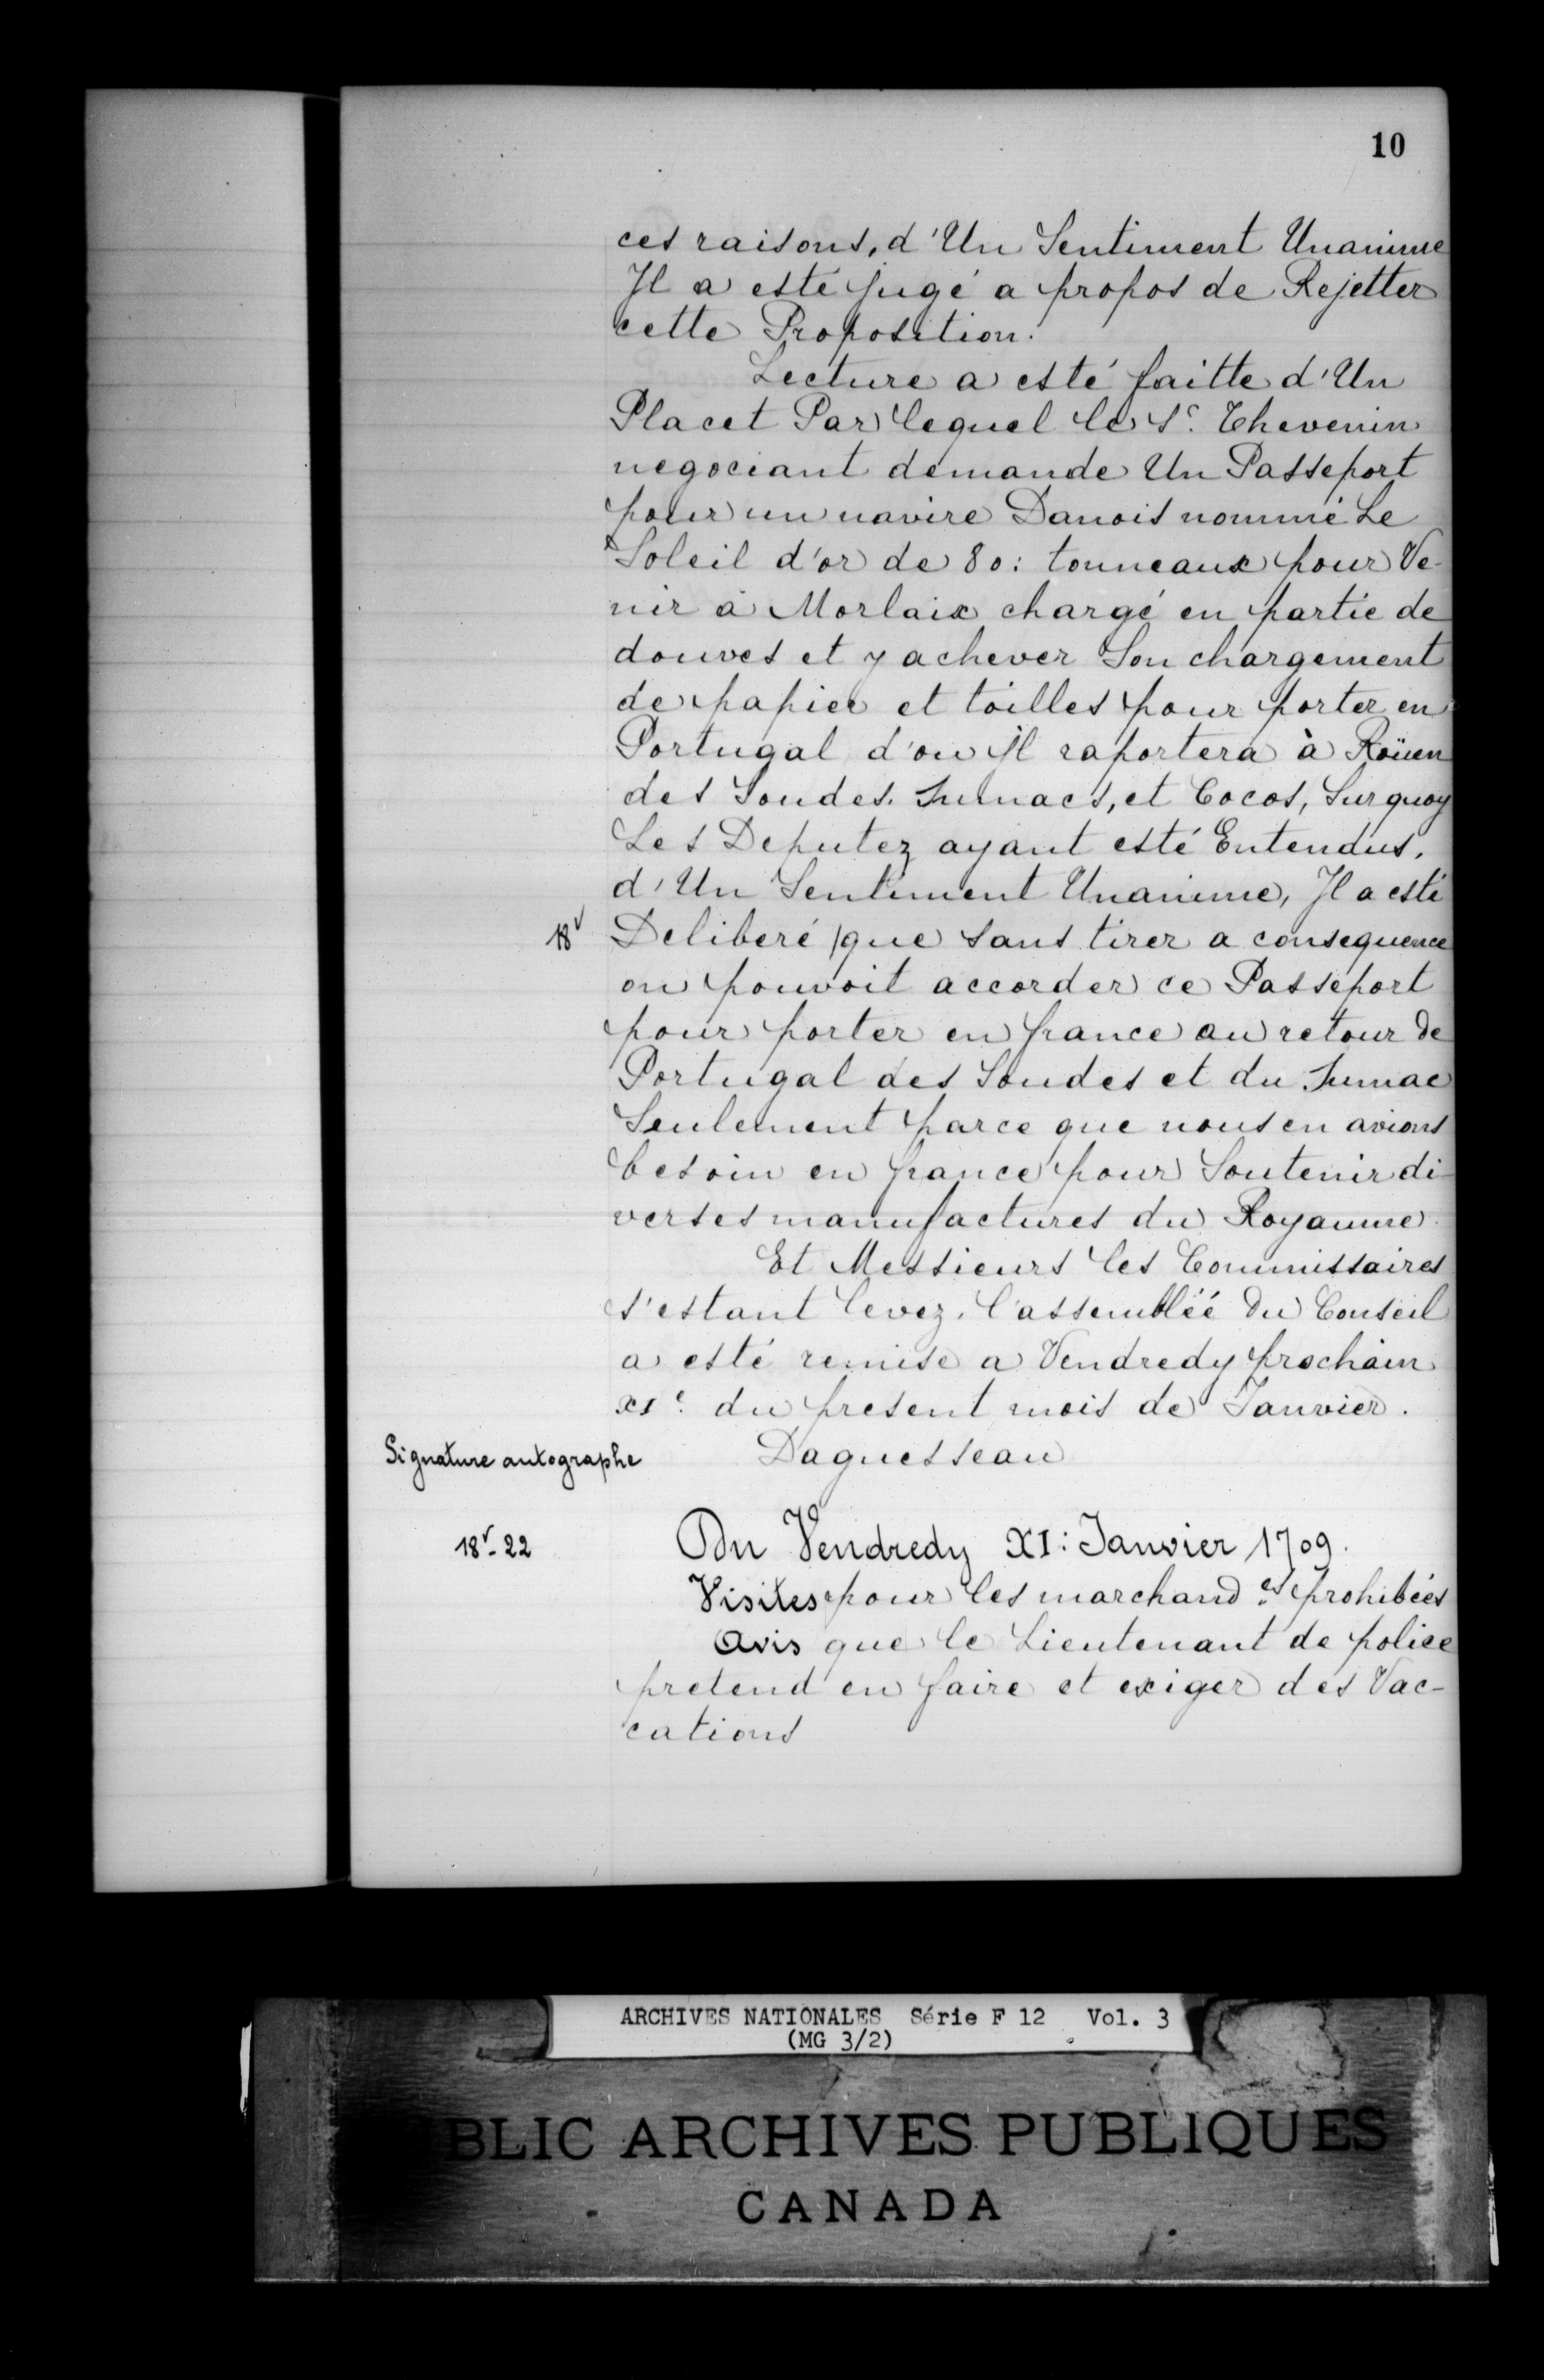 10
ces raisons, d'Un Sentiment Unanime
Il a esté jugé a propos de Rejetter
cette Proposition.
Lecture a esté faitte d'Un
Placet Par lequel le Sr. Thevenin
negociant demande Un Passeport
pour un navire Danois nommé Le
Soleil d'or de 80: tonneaux pour Ve-
nir à Morlaix chargé en partie de
douves et y achever Son chargement
de papier et toilles pour porter en
Portugal d'ou Il raportera à Roüen
des Soudes. Sumacs, et Cocos, Surquoy
Les Deputez ayant esté Entendus,
d'Un Sentiment Unanime, Il a esté
18v Deliberé |que Sans tirer a consequence
on pouvoit accorder ce Passeport
pour porter en france au retour de
Portugal des Soudes et du Sumac
Seulement parce que nous en avions
besoin en france pour Soutenir di-
verses manufactures du Royaume.
Et Messieurs les Commissaires
s'estant levez, l'assemblée du Conseil
a esté remise a Vendredy prochain
xie. du present mois de Janvier.
Signature autographe Daguesseau
18v-22 Du Vendredy XI: Janvier 1709.
Visites pour les marchandes. prohibées
Avis que le Lieutenant de police
pretend en faire et exiger des Vac-
cations
ARCHIVES NATIONALES Série F 12 Vol. 3
(MG 3/2)
BLIC ARCHIVES PUBLIQUES
CANADA